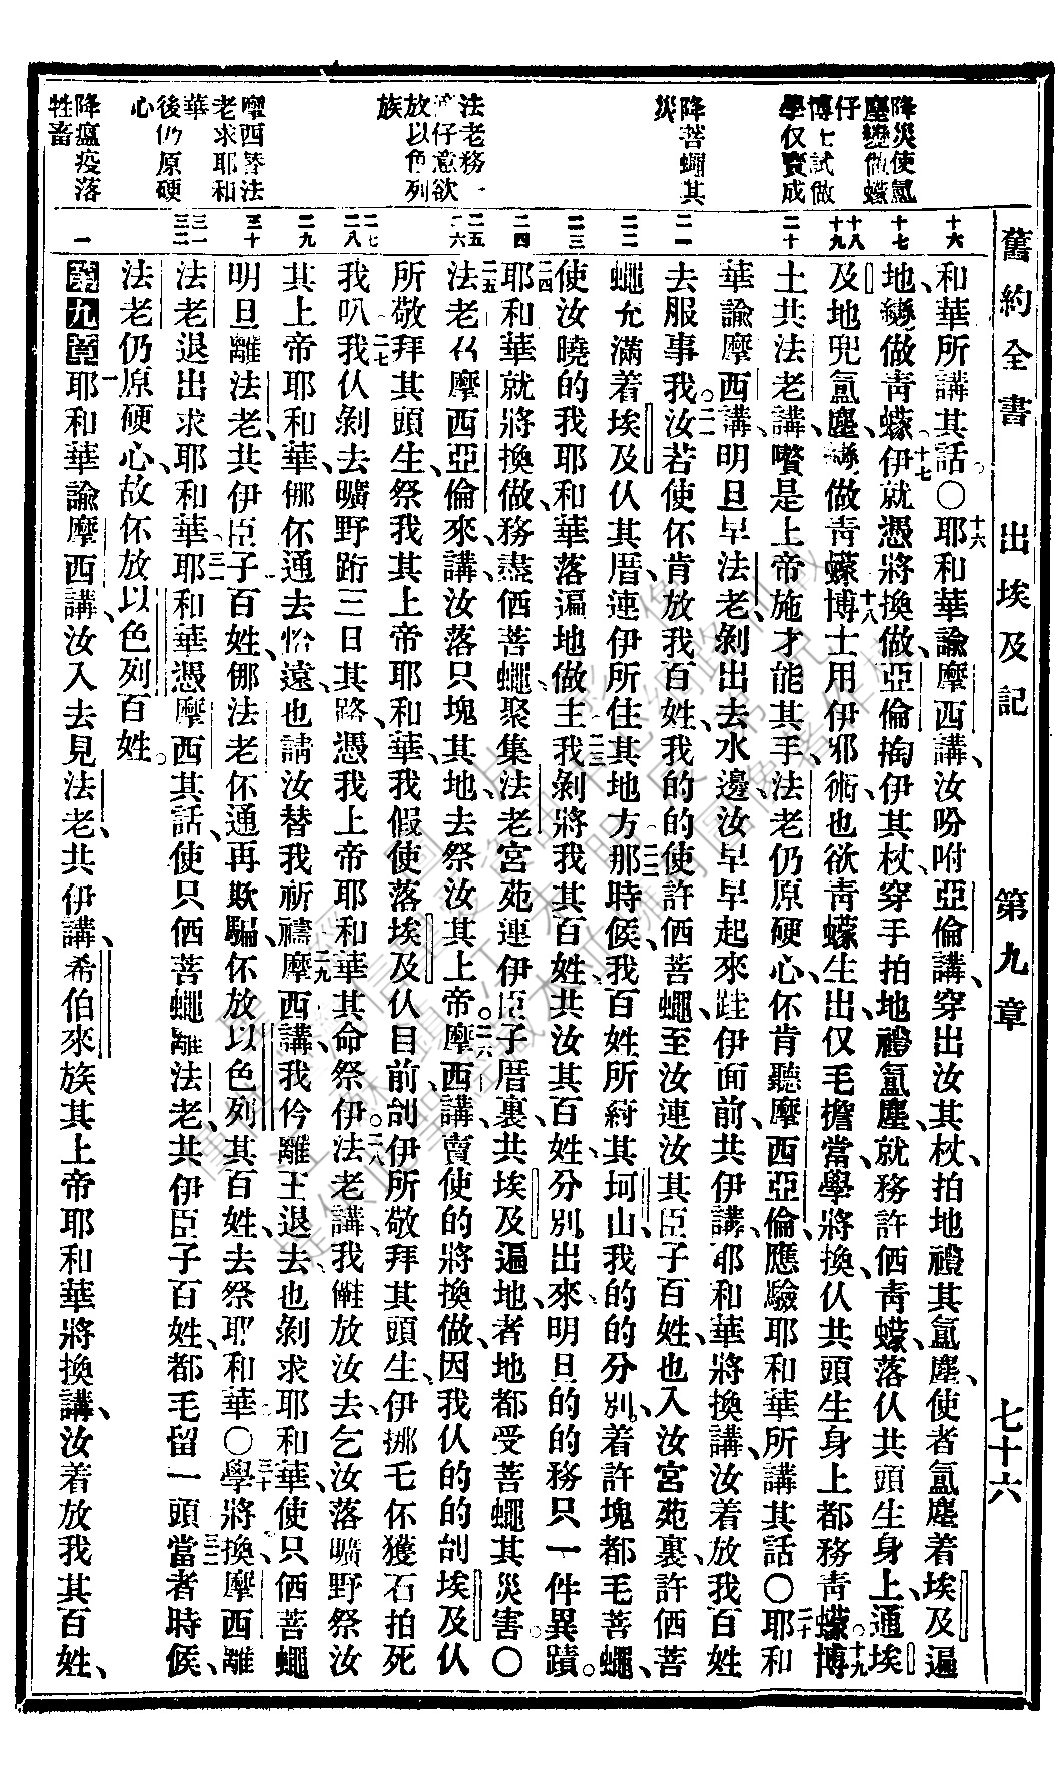 舊約全書　出埃及記　第九章　七十六
降災使氳
塵變做蠓
仔
博士試做
學仅賣成
降菩蠅其
災
法老務一
仔意欲
放以色列
族
摩西替法
老求耶和
華
後仍原硬
心
降瘟疫落
牲畜
十六
十七
十八
十九
二十
二一
二二
二三
二四
二五
二六
二七
二八
二九
三十
三一
三二
一
和華所講其話。〇十六耶和華諭摩西講、汝吩咐亞倫講、穿出汝其杖、拍地禮其氳塵、使者氳塵着埃及遍
地、變做靑蠓。十七伊就憑將換做、亞倫掏伊其杖、穿手拍地禮氳塵、就務許価靑蠓、落仈共頭生身上、通埃
及地兜氳塵、變做靑蠓。十八博士用伊邪術、也欲靑蠓生出、仅毛擔當、學將換、仈共頭生身上都務靑蠓。十九博
士共法老講、嚽是上帝施才能其手、法老仍原硬心、怀肯聽摩西亞倫、應驗耶和華所講其話〇二十耶和
華諭摩西講、明旦早、法老剝出去水邊、汝早早起來、跬伊面前、共伊講、耶和華將換講、汝着放我百姓
去服事我。二一汝若使怀肯放我百姓、我的的使許価菩蠅、至汝連汝其臣子百姓、也入汝宮苑裏、許価菩
蠅、充滿着埃及仈其厝、連伊所住其地方。二二那時候、我百姓所䘵其坷山、我的的分別。着許塊都毛菩蠅、
使汝曉的我耶和華落遍地做主。二三我剝將我其百姓、共汝其百姓、分別。出來、明旦的的務只一件異蹟。
二四耶和華就將換做、務盡価菩蠅、聚集法老宮苑、連伊臣子厝裏、共埃及遍地、者地都受菩蠅其災害。〇
二五法老仫摩西亞倫來、講、汝落只塊其地、去祭汝其上帝。二六摩西講、賣使的將換做、因我仈的的刣埃及仈
所敬拜其頭生、祭我其上帝耶和華、我假使落埃及仈目前、刣伊所敬拜其頭生、伊挪乇怀獲石拍死
我叭。二七我仈剝去曠野跡三日其路、憑我上帝耶和華其命祭伊。二八法老講、我儺放汝去、乞汝落曠野祭汝
其上帝耶和華、倻怀通去怡遠、也請汝替我祈禱。二九摩西講、我伶離王退去、也剝求耶和華、使只価菩蠅
明旦離法老、共伊臣子百姓、倻法老怀通再欺騙、怀放以色列其百姓、去祭耶和華〇三十學將換、摩西離
法老退出、求耶和華。三一耶和華憑摩西其話、使只価菩蠅離法老、共伊臣子百姓、都毛留一頭、當者時候、三二
法老仍原硬心、故怀放以色列百姓。
第九章　一耶和華諭摩西講、汝入去見法老、共伊講、希伯來族其上帝耶和華將換講、汝着放我其百姓、